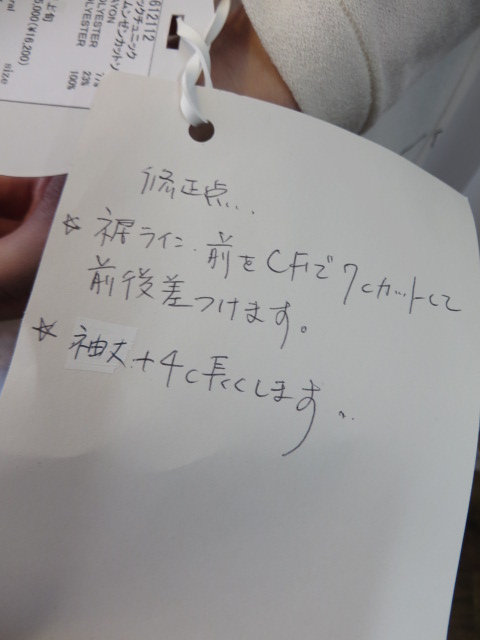 612112
ックチュニック
ムンゼンカットソ
AYON
OLYESTER
OLYESTER
77%
23%
100%
上旬
5,000(¥16,200)
size
修正点...
☆ 裾ライン. 前をCFで7cカットして
前後差つけます。
☆ 袖丈+4c長くします...